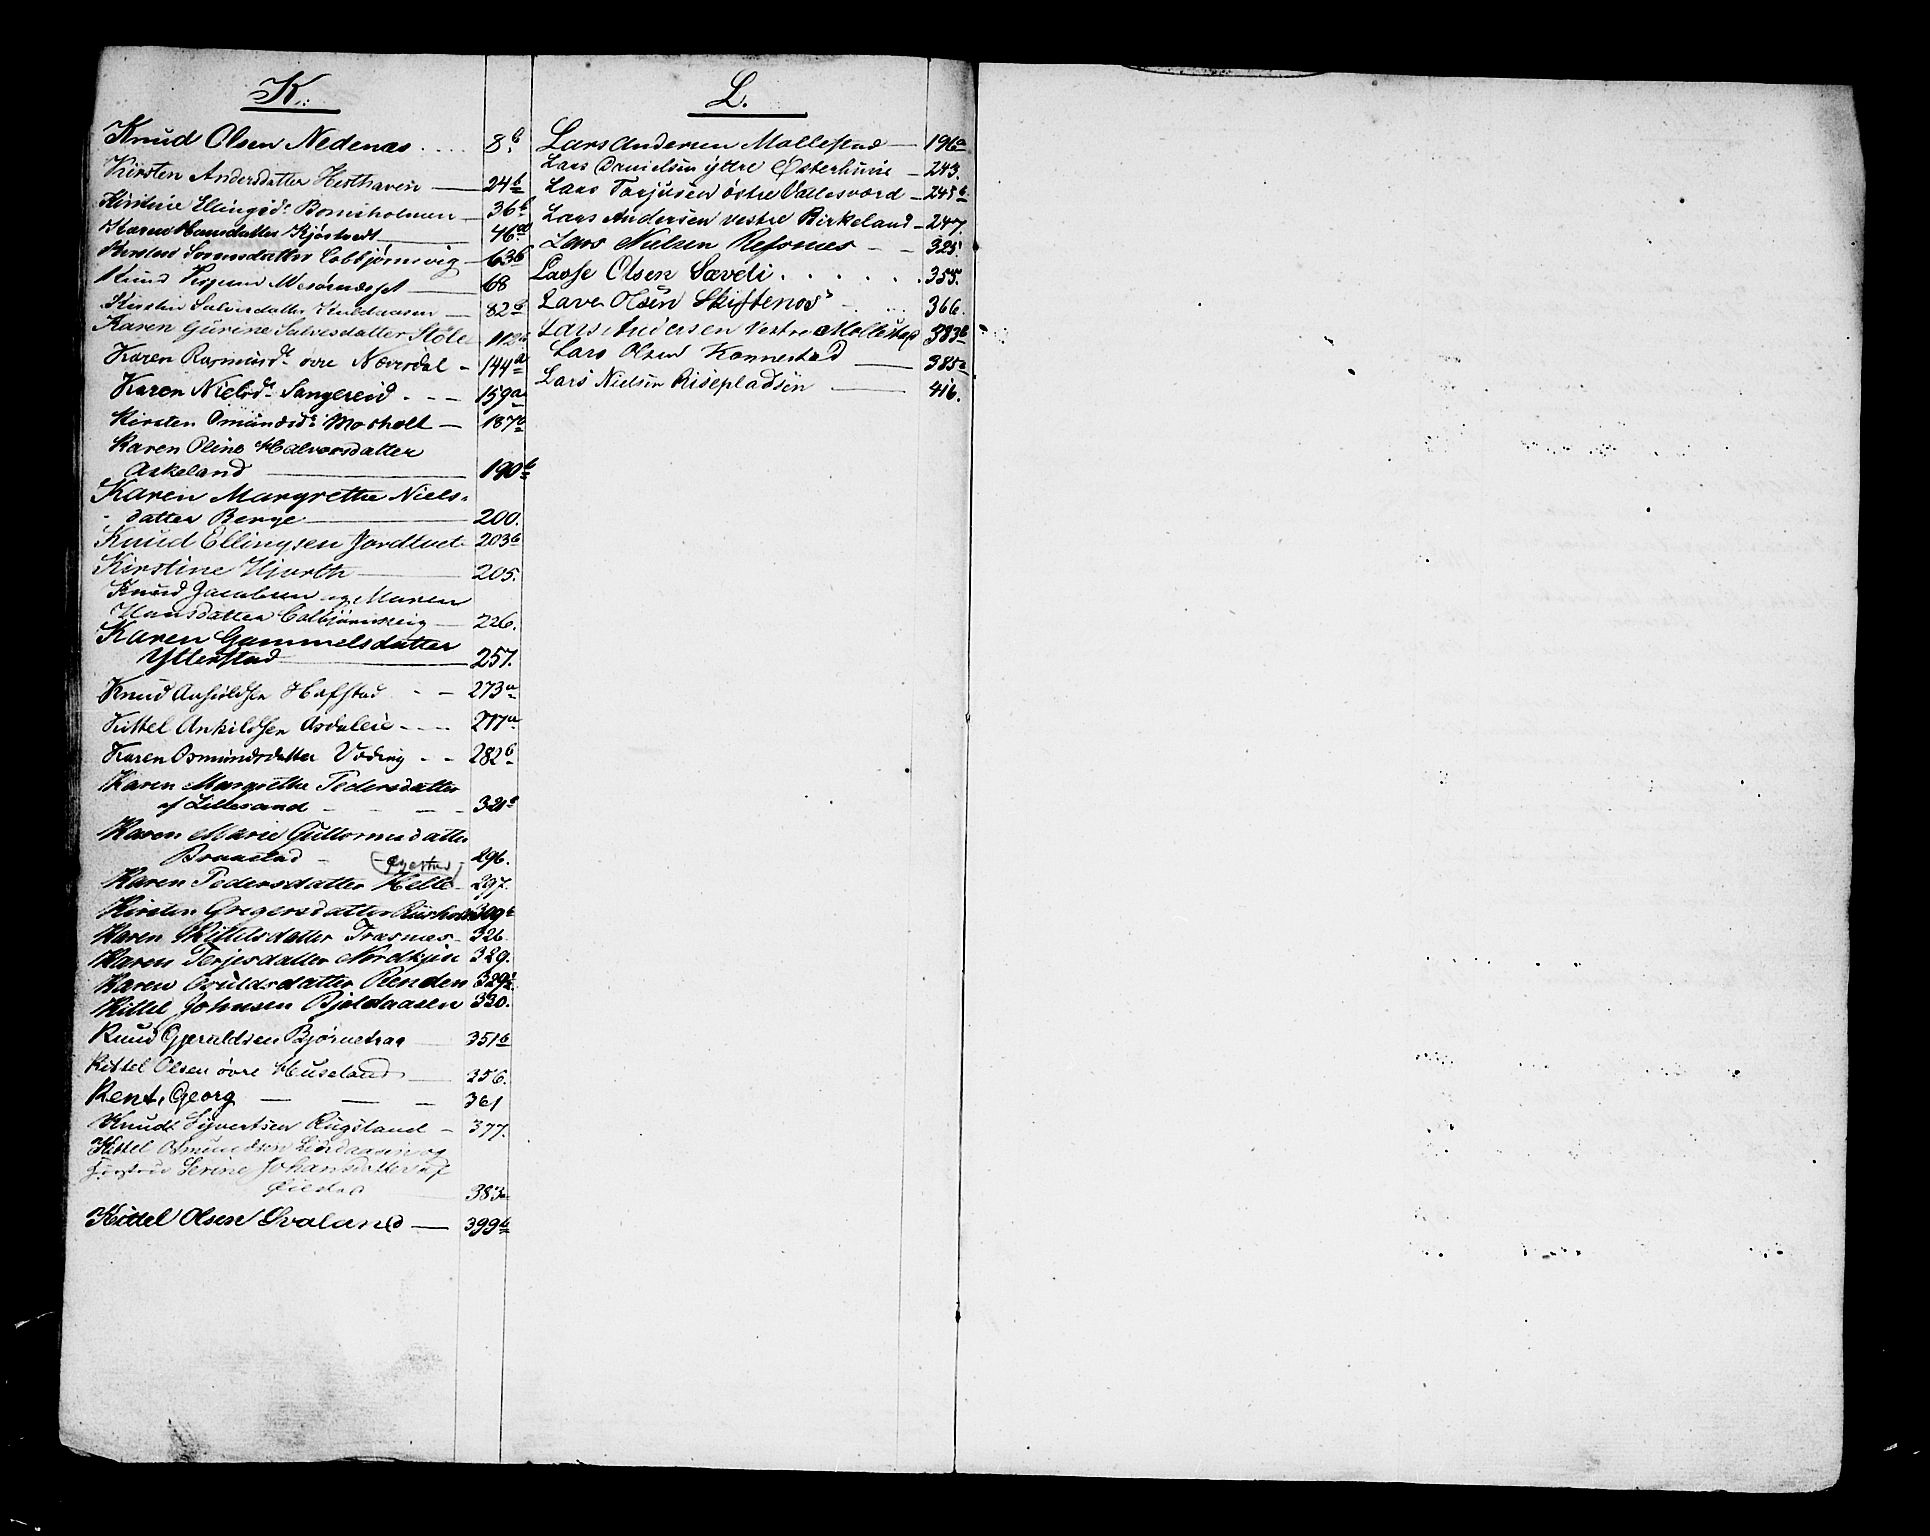 K.
Knud Olsen Nedenæs 8.b
Kirsten Andersdatter Hesthaven 24b
Kirstine Ellingsd. Borniholmen 36b
Karen Hansdatter Kjøstvedt 46a
Kirsten Sørensdatter Colbjørnsvig 63b
Knud 68
Kirsten Salvesdatter 82b
Karen Gurine Salvesdatter Støle 112a
Karen Rasmusd. øvre Næversdal 144a
Karen Nielsd. Sangereid 159a
Kirsten Omundsd. Mosholt 187b
Karen Oline Halvorsdatter
Askeland 190b
Karen Margrethe Niels-
datter Berge 200.
Knud Ellingsen 203b
Kirstine Hjorth 205.
Knud Jacobsen og Maren
Hansdatter Colbjørnsvig 226.
Karen Gammelsdatter
Ytterstad 257.
Knud Hafstad 273a
Kittel Askildsen Asdaleie 277a
Karen Osmundsdatter 282b
Karen Margrethe Pedersdatter
af Lillesand 321
Karen Marie Guttormsdatter
Braastad (Øyestad) 296.
Karen Pedersdatter Helle 297.
Kirsten Gregersdatter 309b
Karen Kittelsdatter Træsnæs 326.
Karen Terjesdatter 329.
Karen Renden 329
Kittel Johnsen Bjeldaasen 330.
Knud Gjeruldsen Bjørnetraa 351b
Kittel Olsen øvre Huseland 356.
Kent, Georg 361
Knudt Syvertsen Rugsland 377.
Kittel Osmundsen og
Serine Johansdatter af
Øiestad 383
Kittel Olsen Svaland 399b
L.
Lars Andersen Mollestad 196a
Lars Danielsen yttre Østerhuus 243.
Lars Tarjusen østre Vallesværd 245b
Lars Andersen vestre Birkeland 247.
Lars Nielsen Refsnes 325.
Lasse Olsen Sæveli 355.
Lave Olsen Skiftenes 366.
Lars Andersen vestre Mollestad 383b
Lars Olsen Konnestad 385a
Lars Nielsen Risepladsen 416.